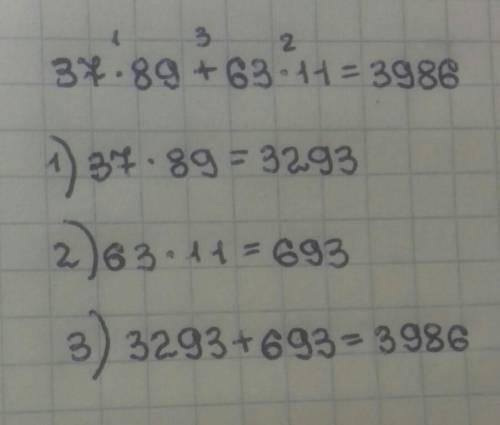 1 3 2
37·89+63·11=3986
1) 37·89=3293
2) 63·11=693
3) 3293+693=3986